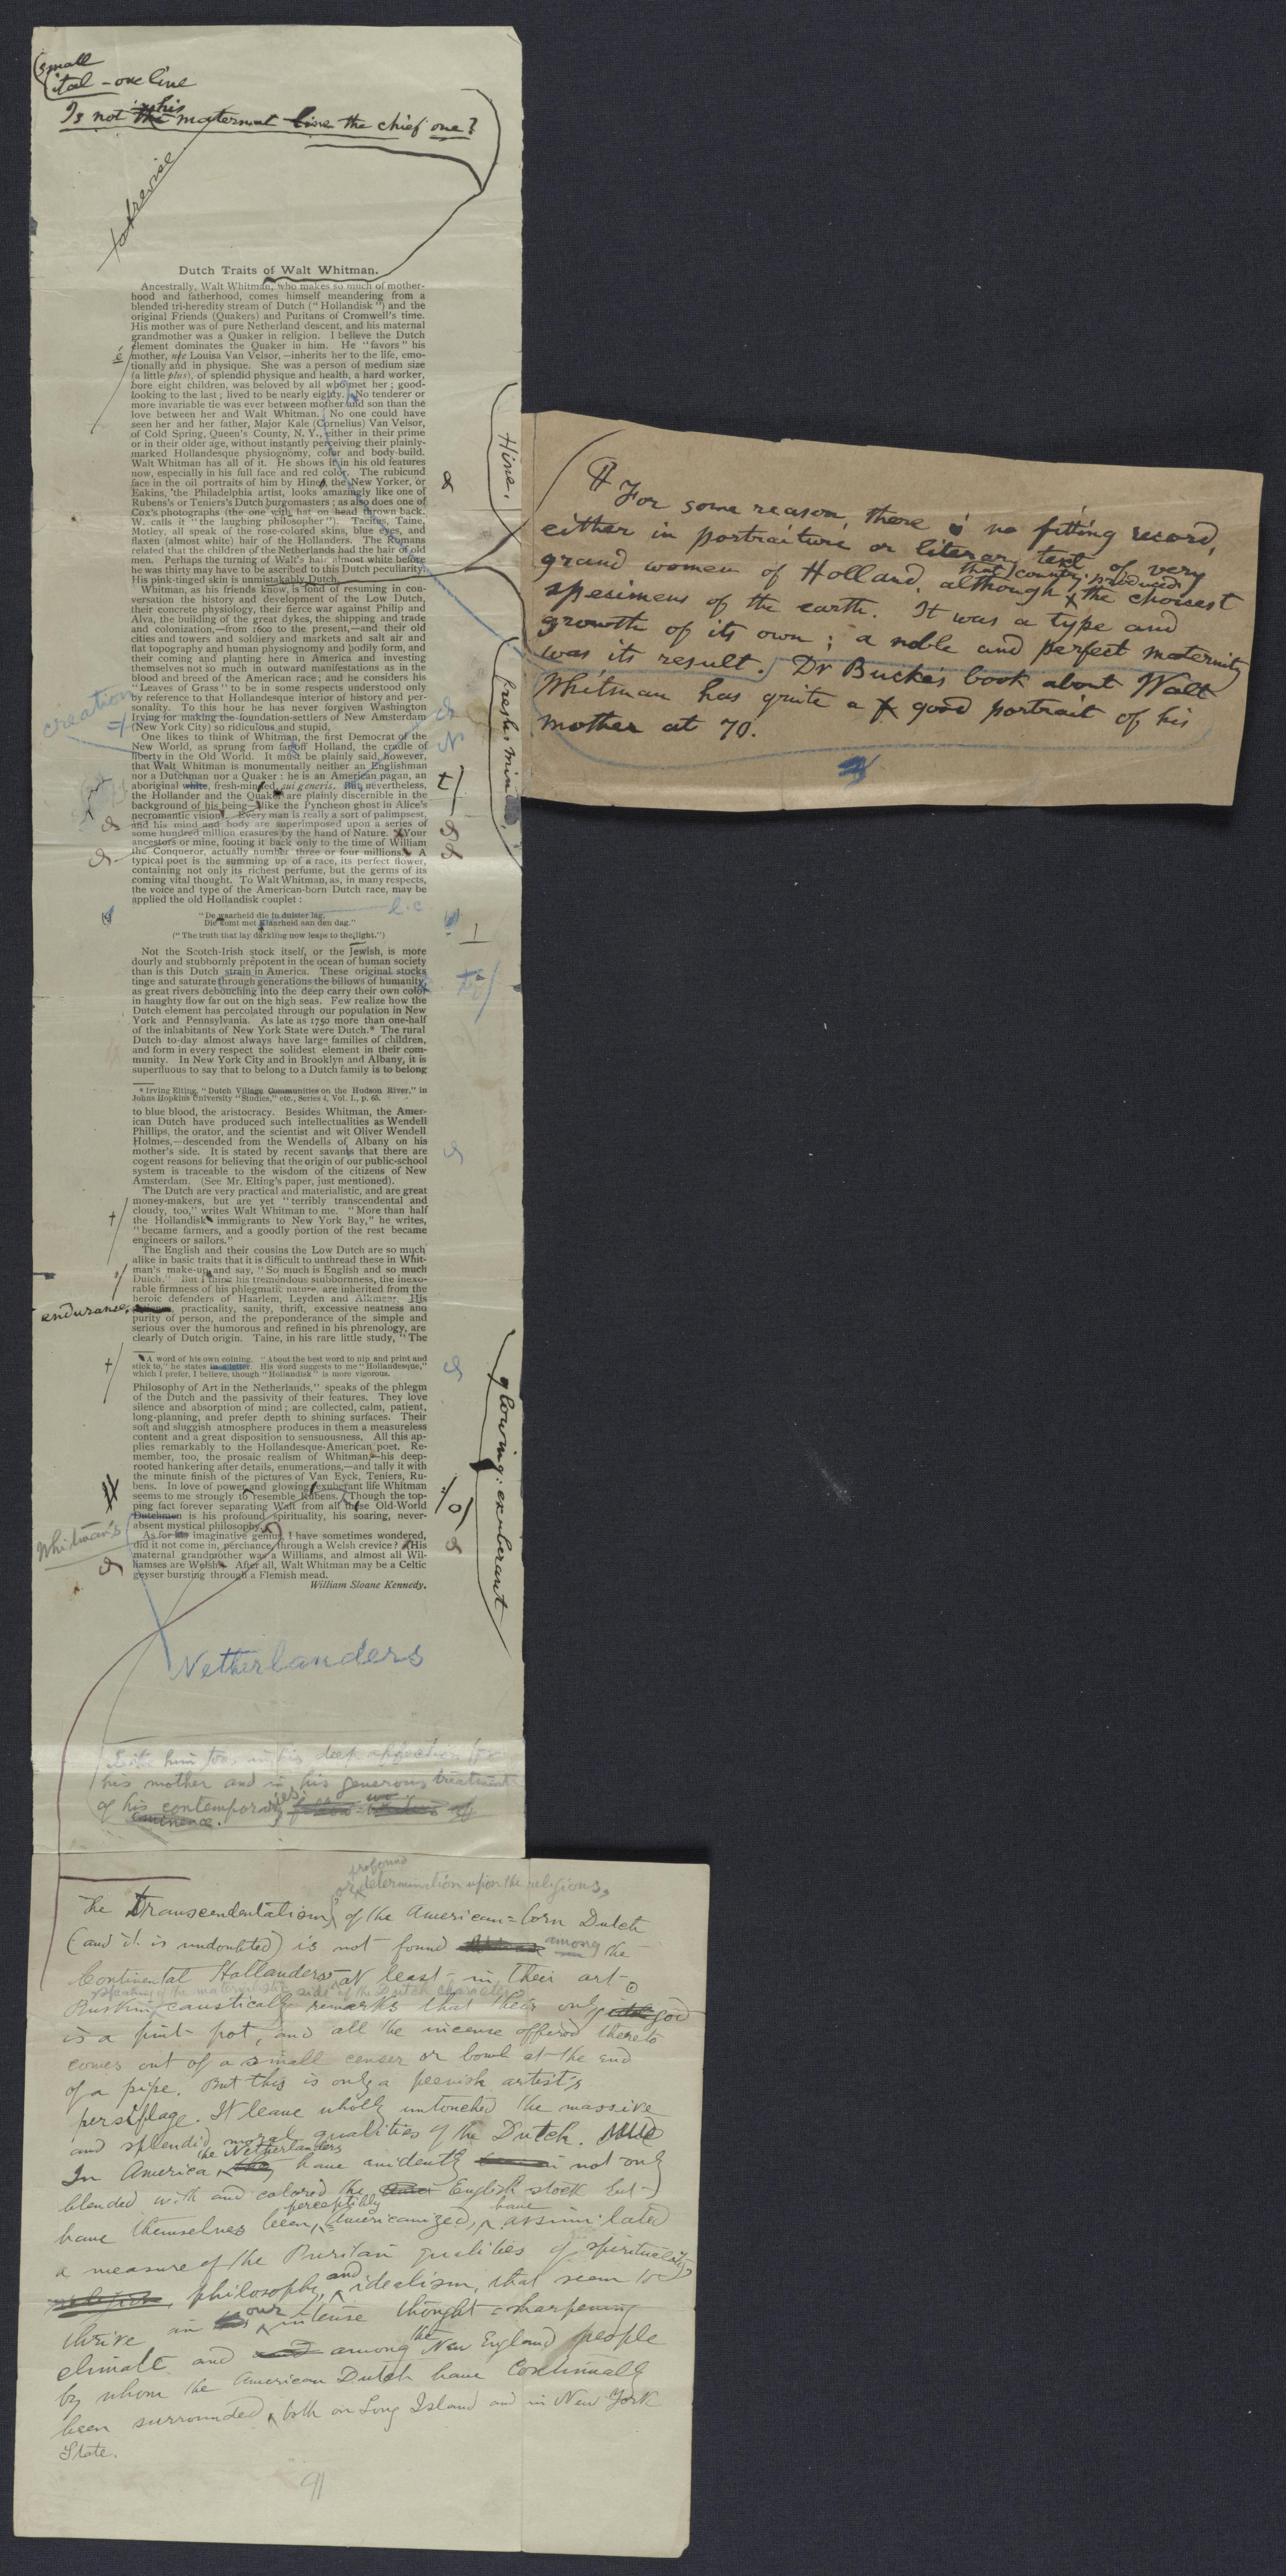 (small
ital — one line
Is not the his maternal line the chief one?
to revise
Dutch Traits of Walt Whitman.
Ancestrally, Walt Whitman, who makes so much of mother-
hood and fatherhood, comes himself meandering from a
blended tri-heredity stream of Dutch ("Hollandisk") and the
original Friends (Quakers) and Puritans of Cromwell's time.
His mother was of pure Netherland descent, and his maternal
grandmother was a Quaker in religion. I believe the Dutch
element dominates the Quaker in him. He "favors" his
é
mother, nee Louisa Van Velsor,—inherits her to the life, emo-
tionally and in physique. She was a person of medium size
(a little plus), of splendid physique and health, a hard worker,
bore eight children, was beloved by all who met her; good-
looking to the last; lived to be nearly eighty. No tenderer or
more invariable tie was ever between mother and son than the
love between her and Walt Whitman. No one could have
seen her and her father, Major Kale (Cornelius) Van Velsor,
of Cold Spring, Queen's County, N. Y., either in their prime
or in their older age, without instantly perceiving their plainly-
marked Hollandesque physiognomy, color and body-build.
Walt Whitman has all of it. He shows it in his old features
now, especially in his full face and red color. The rubicund
face in the oil portraits of him by Hine, the New Yorker, or
Hine,
Eakins, the Philadelphia artist, looks amazingly like one of
Rubens's or Teniers's Dutch burgomasters; as also does one of
Cox's photographs (the one with hat on head thrown back.
W. calls it "the laughing philosopher"). Tacitus, Taine,
Motley, all speak of the rose-colored skins, blue eyes, and
flaxen (almost white) hair of the Hollanders. The Romans
related that the children of the Netherlands had the hair of old
men. Perhaps the turning of Walt's hair almost white before
he was thirty may have to be ascribed to this Dutch peculiarity.
His pink-tinged skin is unmistakably Dutch.
¶ For some reason, there is no fitting record,
either in portraiture or literary text of very
grand women of Holland, although that country produced the choicest
specimens of the earth. It was a type and
growth of its own; a noble and perfect maternity
was its result. Dr Bucke's book about Walt
Whitman has quite a good portrait of his
mother at 70.
Whitman, as his friends know, is fond of resuming in con-
versation the history and development of the Low Dutch,
their concrete physiology, their fierce war against Philip and
Alva, the building of the great dykes, the shipping and trade
and colonization,—from 1600 to the present,—and their old
cities and towers and soldiery and markets and salt air and
flat topography and human physiognomy and bodily form, and
their coming and planting here in America and investing
themselves not so much in outward manifestations as in the
blood and breed of the American race; and he considers his
"Leaves of Grass" to be in some respects understood only
by reference to that Hollandesque interior of history and per-
sonality. To this hour he has never forgiven Washington
creation
Irving for making the foundation-settlers of New Amsterdam
(New York City) so ridiculous and stupid.
One likes to think of Whitman, the first Democrat of the
New World, as sprung from faroff Holland, the cradle of
liberty in the Old World. It must be plainly said, however,
that Walt Whitman is monumentally neither an Englishman
nor a Dutchman nor a Quaker: he is an American pagan, an
aboriginal white, fresh-minded, sui generis. But, nevertheless,
fresh-mind
the Hollander and the Quaker are plainly discernible in the
background of his being—like the Pyncheon ghost in Alice's
necromantic vision. Every man is really a sort of palimpsest,
and his mind and body are superimposed upon a series of
some hundred million erasures by the hand of Nature. Your
ancestors or mine, footing it back only to the time of William
the Conqueror, actually number three or four millions. A
typical poet is the summing up of a race, its perfect flower,
containing not only its richest perfume, but the germs of its
coming vital thought. To Walt Whitman, as, in many respects,
the voice and type of the American-born Dutch race, may be
applied the old Hollandisk couplet:
"De waarheid die in duister lag,
l.c
Die komt met Klaarheid aan den dag."
("The truth that lay darkling now leaps to the light.")
Not the Scotch-Irish stock itself, or the Jewish, is more
dourly and stubbornly prepotent in the ocean of human society
than is this Dutch strain in America. These original stocks
tinge and saturate through generations the billows of humanity,
as great rivers debouching into the deep carry their own color
in haughty flow far out on the high seas. Few realize how the
Dutch element has percolated through our population in New
York and Pennsylvania. As late as 1750 more than one-half
of the inhabitants of New York State were Dutch.* The rural
Dutch to-day almost always have large families of children,
and form in every respect the solidest element in their com-
munity. In New York City and in Brooklyn and Albany, it is
superfluous to say that to belong to a Dutch family is to belong
* Irving Elting, "Dutch Village Communities on the Hudson River," in
Johns Hopkins University "Studies," etc., Series 4, Vol. I., p. 65.
to blue blood, the aristocracy. Besides Whitman, the Amer-
ican Dutch have produced such intellectualities as Wendell
Phillips, the orator, and the scientist and wit Oliver Wendell
Holmes,—descended from the Wendells of Albany on his
mother's side. It is stated by recent savants that there are
cogent reasons for believing that the origin of our public-school
system is traceable to the wisdom of the citizens of New
Amsterdam. (See Mr. Elting's paper, just mentioned).
The Dutch are very practical and materialistic, and are great
money-makers, but are yet "terribly transcendental and
cloudy, too," writes Walt Whitman to me. "More than half
the Hollandisk immigrants to New York Bay," he writes,
"became farmers, and a goodly portion of the rest became
engineers or sailors."
The English and their cousins the Low Dutch are so much
alike in basic traits that it is difficult to unthread these in Whit-
man's make-up and say, "So much is English and so much
Dutch." But I think his tremendous stubbornness, the inexo-
rable firmness of his phlegmatic nature, are inherited from the
heroic defenders of Haarlem, Leyden and Alkmaar. His
endurance,
practicality, sanity, thrift, excessive neatness and
purity of person, and the preponderance of the simple and
serious over the humorous and refined in his phrenology, are
clearly of Dutch origin. Taine, in his rare little study, "The
A word of his own coining. "About the best word to nip and print and
stick to," he states in a letter. His word suggests to me "Hollandesque,"
which I prefer, I believe, though "Hollandisk" is more vigorous.
Philosophy of Art in the Netherlands," speaks of the phlegm
of the Dutch and the passivity of their features. They love
silence and absorption of mind; are collected, calm, patient,
long-planning, and prefer depth to shining surfaces. Their
soft and sluggish atmosphere produces in them a measureless
content and a great disposition to sensuousness. All this ap-
plies remarkably to the Hollandesque-American poet. Re-
member, too, the prosaic realism of Whitman,—his deep-
rooted hankering after details, enumerations,—and tally it with
the minute finish of the pictures of Van Eyck, Teniers, Ru-
bens. In love of power and glowing exuberant life Whitman
glowing: exuberant
seems to me strongly to resemble Rubens. Though the top-
ping fact forever separating Walt from all these Old-World
Dutchmen is his profound spirituality, his soaring, never-
absent mystical philosophy.
Whitman's
As for his imaginative genius, I have sometimes wondered,
did it not come in, perchance, through a Welsh crevice? (His
maternal grandmother was a Williams, and almost all Wil-
liamses are Welsh). After all, Walt Whitman may be a Celtic
geyser bursting through a Flemish mead.
William Sloane Kennedy.
Netherlanders
him too, in his deep affection for
his mother and in his generous treatment
of his contemporaries
eminence.
profound
or determination upon the religions,
The Transcendentalism of the American-born Dutch
(and it is undoubted) is not found among the
Continental Hollanders—at least—in their art.
speaking of the materialistic side of the Dutch character
Ruskin caustically remarks that their only god
is a pint-pot, and all the incense offered thereto
comes out of a small censer or bowl at the end
of a pipe. But this is only a peevish artist's
persiflage. It leaves wholly untouched the massive
and splendid moral qualities of the Dutch.
the Netherlanders
In America have evidently not only
blended with and colored the English stock but
perceptibly have
have themselves been Americanized, assimilated
a measure of the Puritan qualities of spirituality
philosophy, and idealism, that seem to
thrive in our intense thought-sharpening
climate and among the New England people
by whom the American Dutch have continually
been surrounded, both on Long Island and in New York
State.